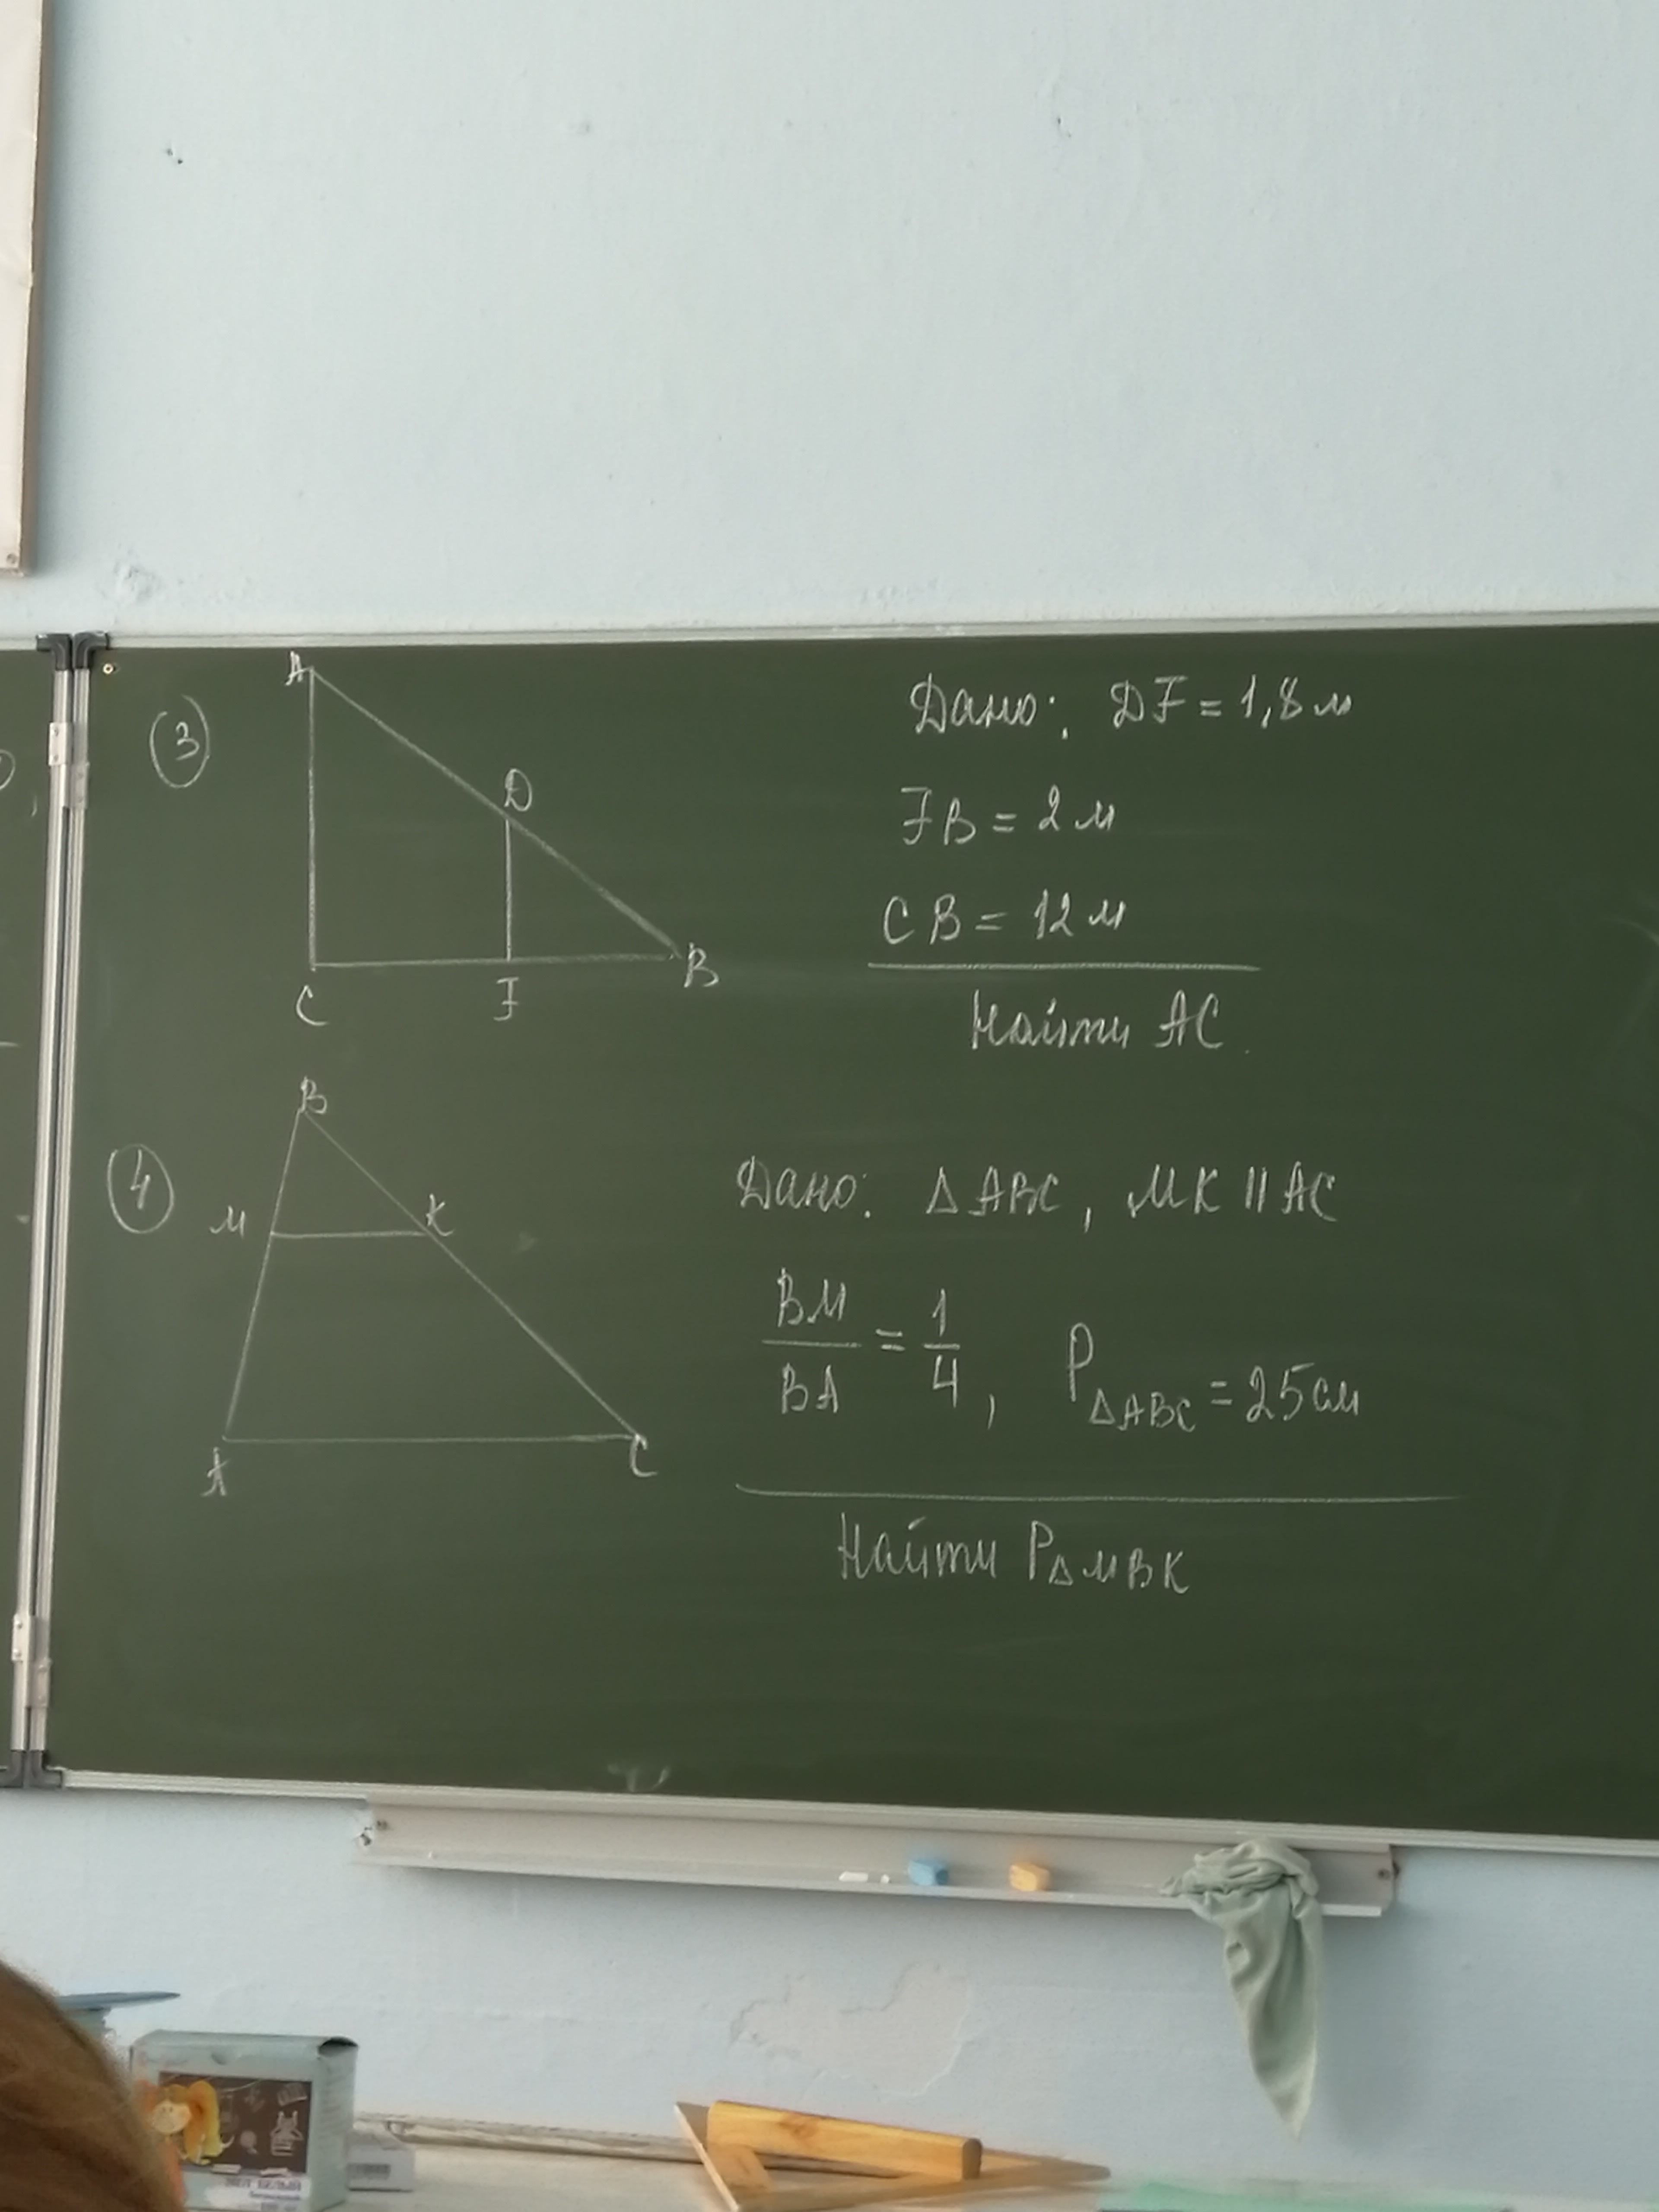 3
A
D
C
F
B
Дано: DF = 1,8 м
FB = 2 м
CB = 12 м
Найти AC.
4
B
M
K
A
C
Дано: Δ ABC, MK || AC
BM/BA = 1/4, P ΔABC = 25 см
Найти P Δ MBK
МЕЛ БЕЛЫЙ